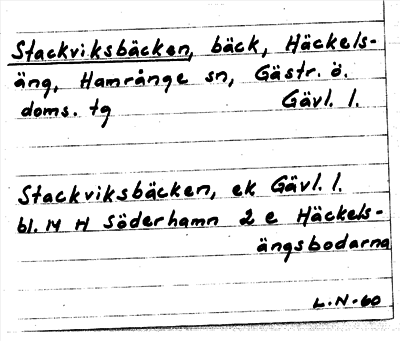 Stackviksbäcken, bäck, Häckels-
äng, Hamrånge sn, Gästr. ö.
doms. tg Gävl. l.
Stackviksbäcken, ek Gävl. l.
bl. 14 H Söderhamn 2 e Häckels-
ängsbodarna
L.N-60